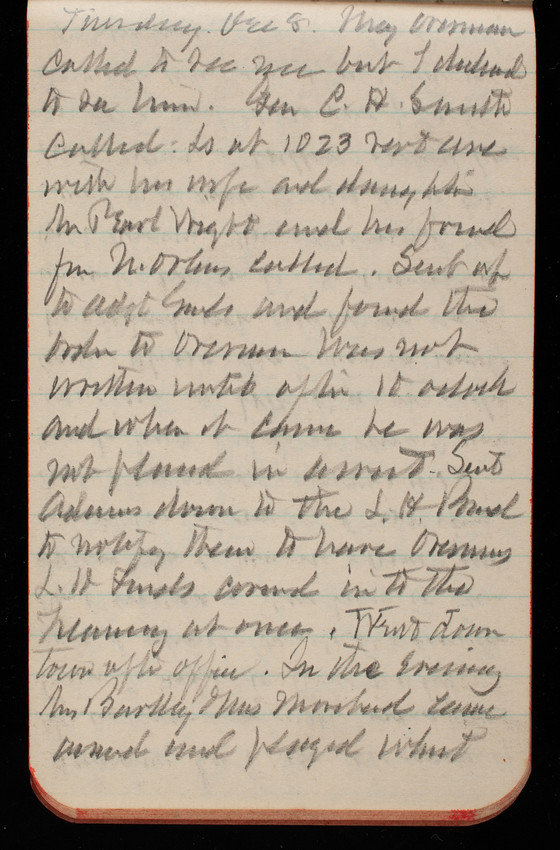 Tuesday. Dec 8. Maj Overman
called to see me but I declined
to see him. Gen C. H. Smith
called: Is at 1023 Vert ave
with his wife and daughter
Mr Pearl Wight and his friend
fm N. Orleans called. Sent up
to adgt Genls and found the
order to Overman was not
written until after 10 oclock
and when it came he was
not placed in arrest. Sent
Adams down to the L. H Board
to notify them to have Overmans
L. H funds covered into the
Treasury at once. Went down
town after office. In the Evening
Mrs Barkley & Mrs came
around and played whist